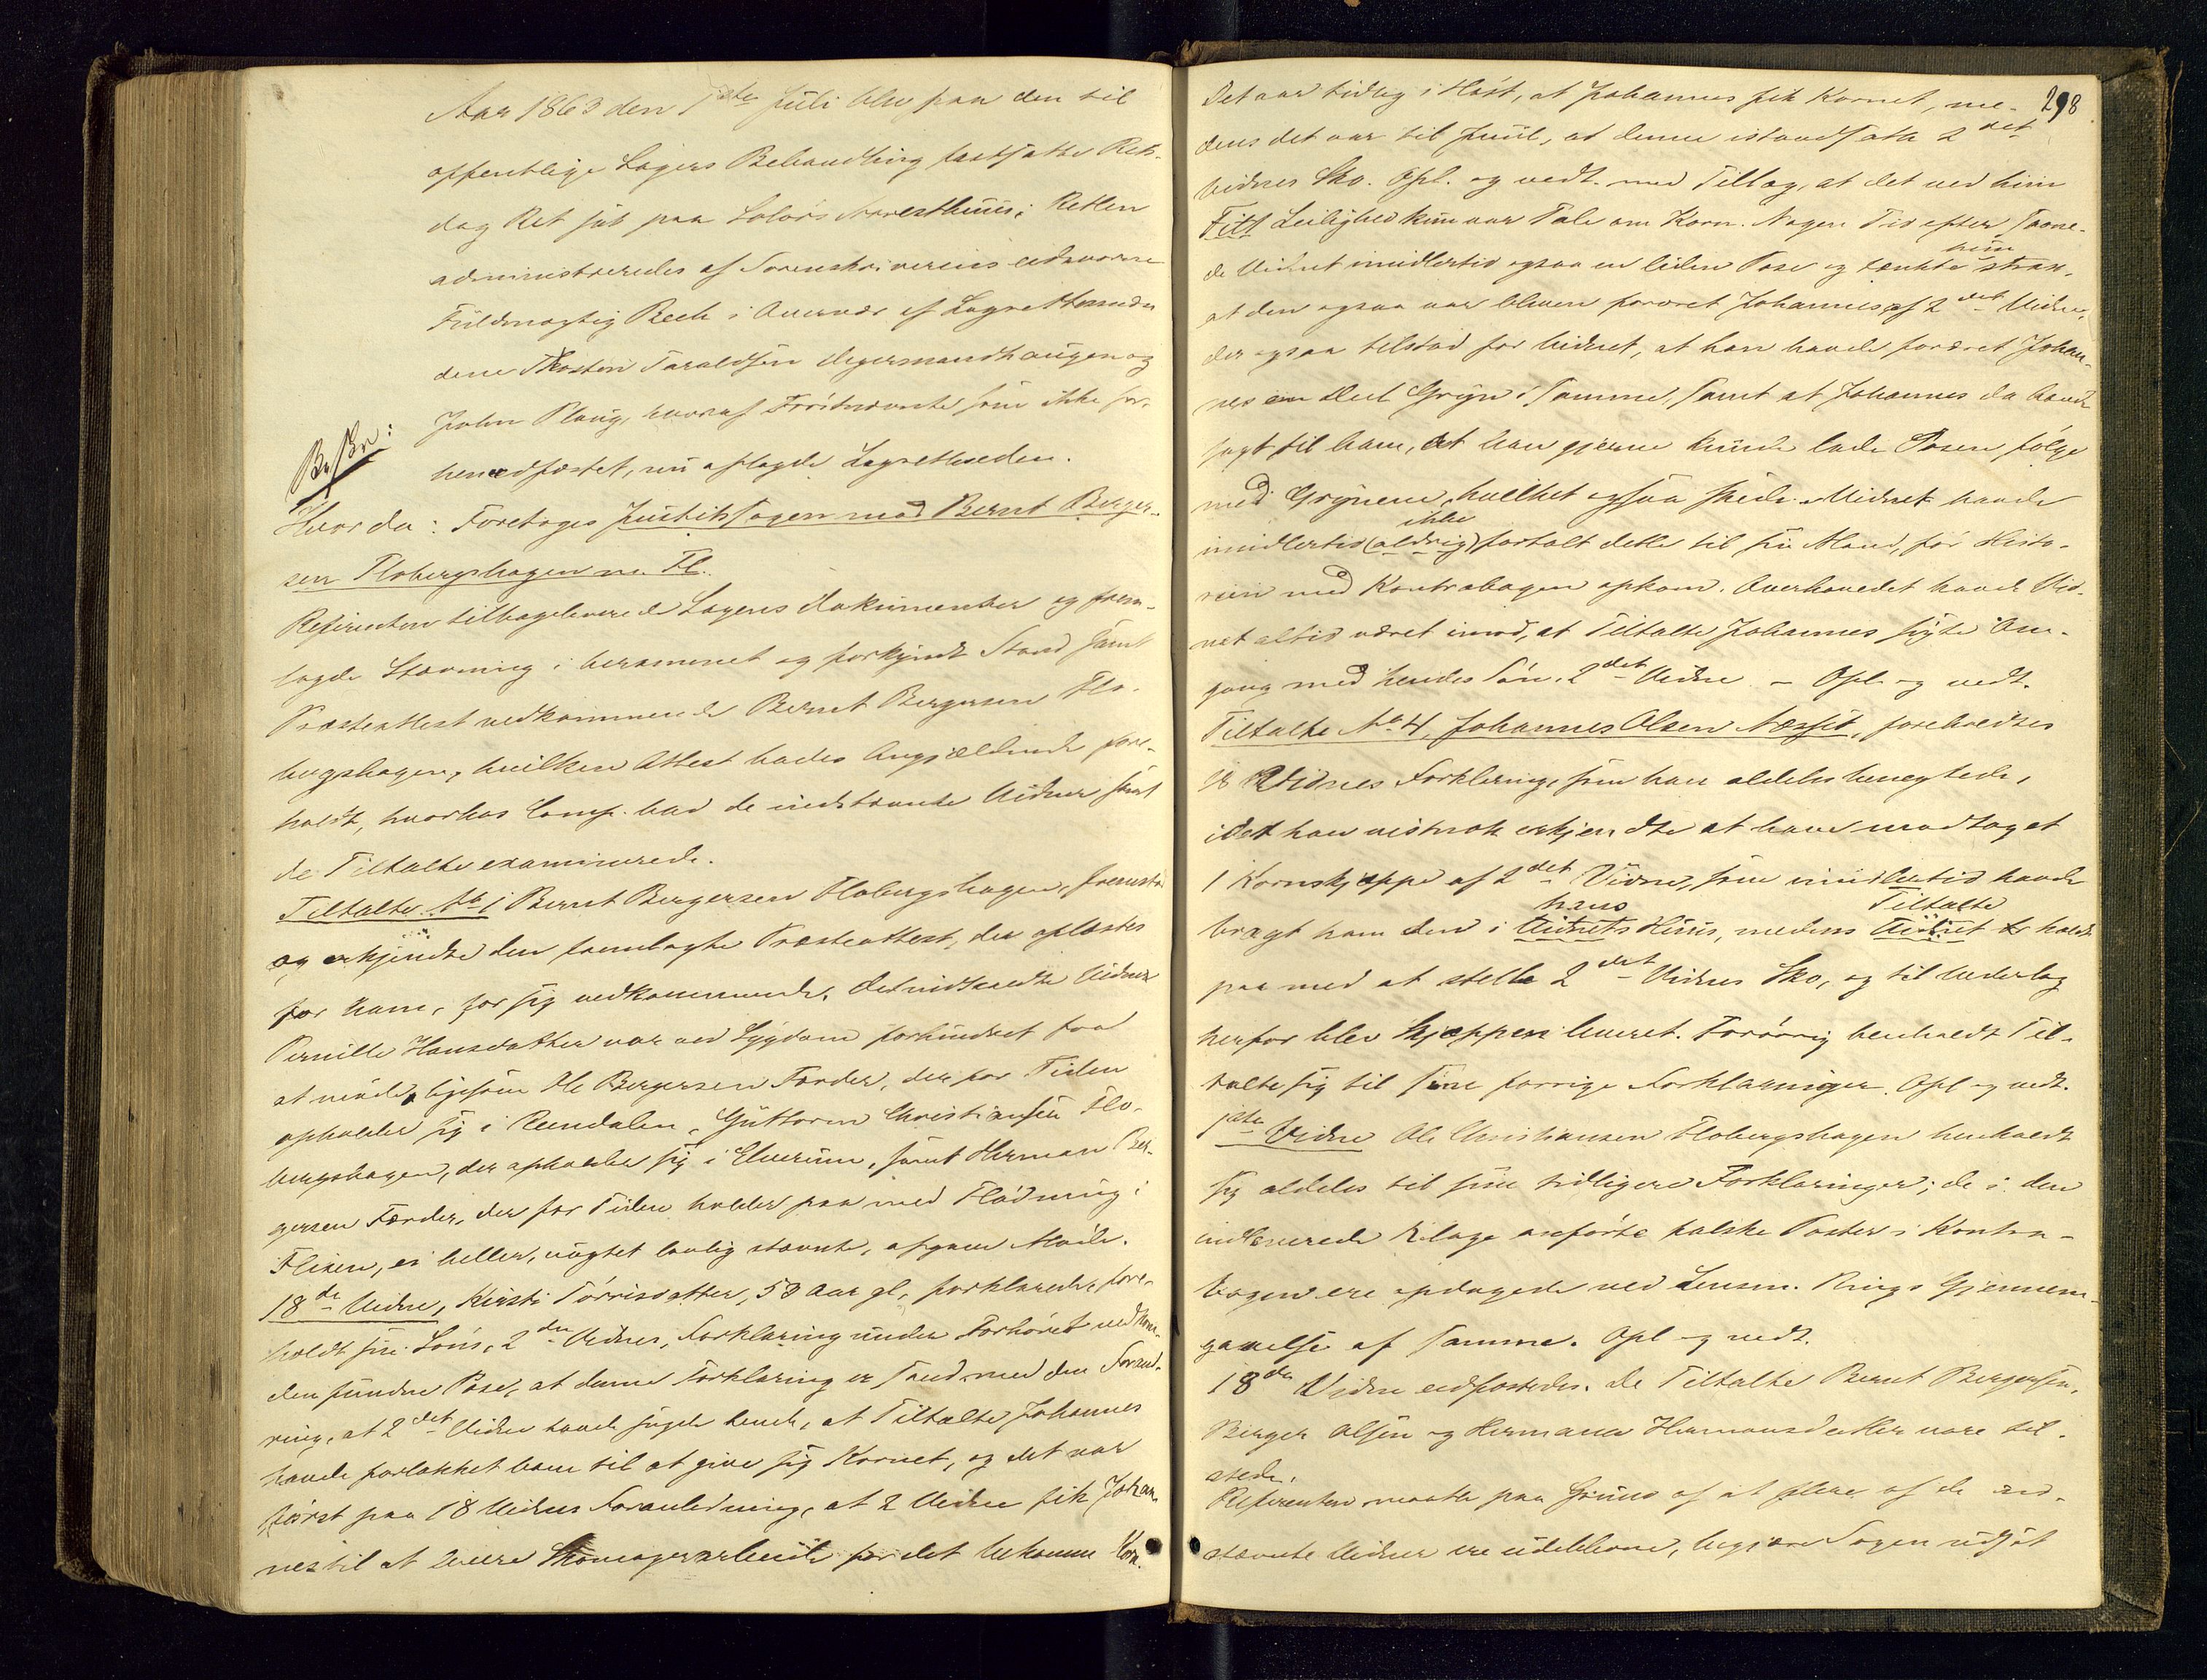 Aar 1863 den 1ste Juli blev paa den til
offentlige Sagers Behandling fastsatte Rets-
dag Ret sat paa Solørs Arresthuus; Retten
administreredes af Sorenskriverens edsvorne
Fuldmægtig Bech i Overvær af Lagrettesmæn
dene Thosten Taraldsen Aegermandhaugen og
John Plaug, hvoraf Førstnævnte som ikke før
heneedfæstet, nu aflagde Lagretteeden.
Beskr:
Hvor da: Foretoges Justitssagen mod Bernt Berger-
sen Flobergshagen m. Fl.
Referenten tilbageleverede Sagens Dokumenter og frem-
lagde Stævning i berammet og forkyndt Stand samt
Præsteattest vedkommende Bernt Bergersen Flo-
bergshagen, hvilken Attest bades Angjældende fore-
holdt, hvorhos Comp. bad de indstævnte Vidner samt
de Tiltalte examinerede.
Tiltalte No 1 Bernt Bergersen Flobergshagen, fremstod
og erkjendte den fremlagte Præsteattest, der oplæstes
for ham, for sig vedkommende. Det indkaldte Vidne
Pernille Hansdatter var ved Sygdom forhindret fra
at møde, ligesom Ole Bergersen Forder, der for Tiden
opholder sig i Rendalen, Guttorm Christiansen Flo-
bergshagen, der opholder sig i Elverum, samt Herman Ber-
gersen Forder, der for Tiden holder paa med Flødning i
Flisen, ei heller, uagtet lovlig stævnte, afgave Møde.
18de Vidne, Kirsti Tørrisdatter, 53 Aar gl, forklarede, fore-
holdt sin Søns, 2den Vidnes, Forklaring under Forhøret ved kom.
den fundne Pose, at denne Forklaring er sand med den Foran-
ring, at 2det Vidne havde sagt hende, at Tiltalte Johannes
havde forlokket ham til at give sig Kornet, og det var
først paa 18 Vidnes Foranledning, at 2 Vidne fik Johan
nes til at levere Skomagerarbeide for det bekomne Korn.
298
Det var tidlig i Høst, at Johannes fik Kornet, me-
dens det var til Juul, at denne istandsatte 2det
Vidnes Sko. Opl. og vedt. med Tillæg, at det ved hiin
Fitt Leilighed kun var Tale om Korn. Nogen Tid efter savne-
de Vidnet imidlertid ogsaa en liden Pose og tænkte hun strax,
at den ogsaa var bleven foræret Johannes af 2det Vidne,
der ogsaa tilstod for Vidnet, at han havde foræret Johan-
nes en Deel Gryn i samme, samt at Johannes da havde
sagt til ham, at han gjerne kunde lade Posen følge
med Grynene, hvilket ogsaa skede. Vidnet havde
imidlertid (aldrig) ikke fortalt dette til sin Mand, før Histo-
rien med Kontrabogen opkom. Overhovedet havde Vid-
net altid været imod, at Tiltalte Johannes søgte Om-
gang med hendes Søn, 2det Vidne – Opl. og vedt.
Tiltalte No 4, Johannes Olsen Næsset, foreholdtes
18 Vidnes Forklaring, som han aldeles benegtede,
idet han vistnok erkjendte at have modtaget
1 Kornskjeppe af 2det Vidne, som imidlertid havde
bragt ham den i Vidnets hans Huus, medens Vidnet Tiltalte holdt
paa med at stelle 2det Vidnes Sko, og til Vederlag
herfor blev Skjeppen leveret. Forøvrig henholdt Til-
talte sig til sine forrige Forklaringer. Opl og vedt.
1ste Vidne Ole Christiansen Flobergshagen henholdt
sig aldeles til sine tidligere Forklaringer; de i den
indleverede Klage anførte falske Poster i Kontra-
bogen ere opdagede ved Lensm. Rings Gjennem-
gaaelse af samme. Opl og vedt.
18de Vidne eedfæstedes. De Tiltalte Bernt Bergersen,
Birger Olsen og Hermana Hermansdatter vare til-
stede.
Referenten maatte paa Grund af at flere af de ind-
stævnte Vidner ere udeblevne, begjære Sagen udsat